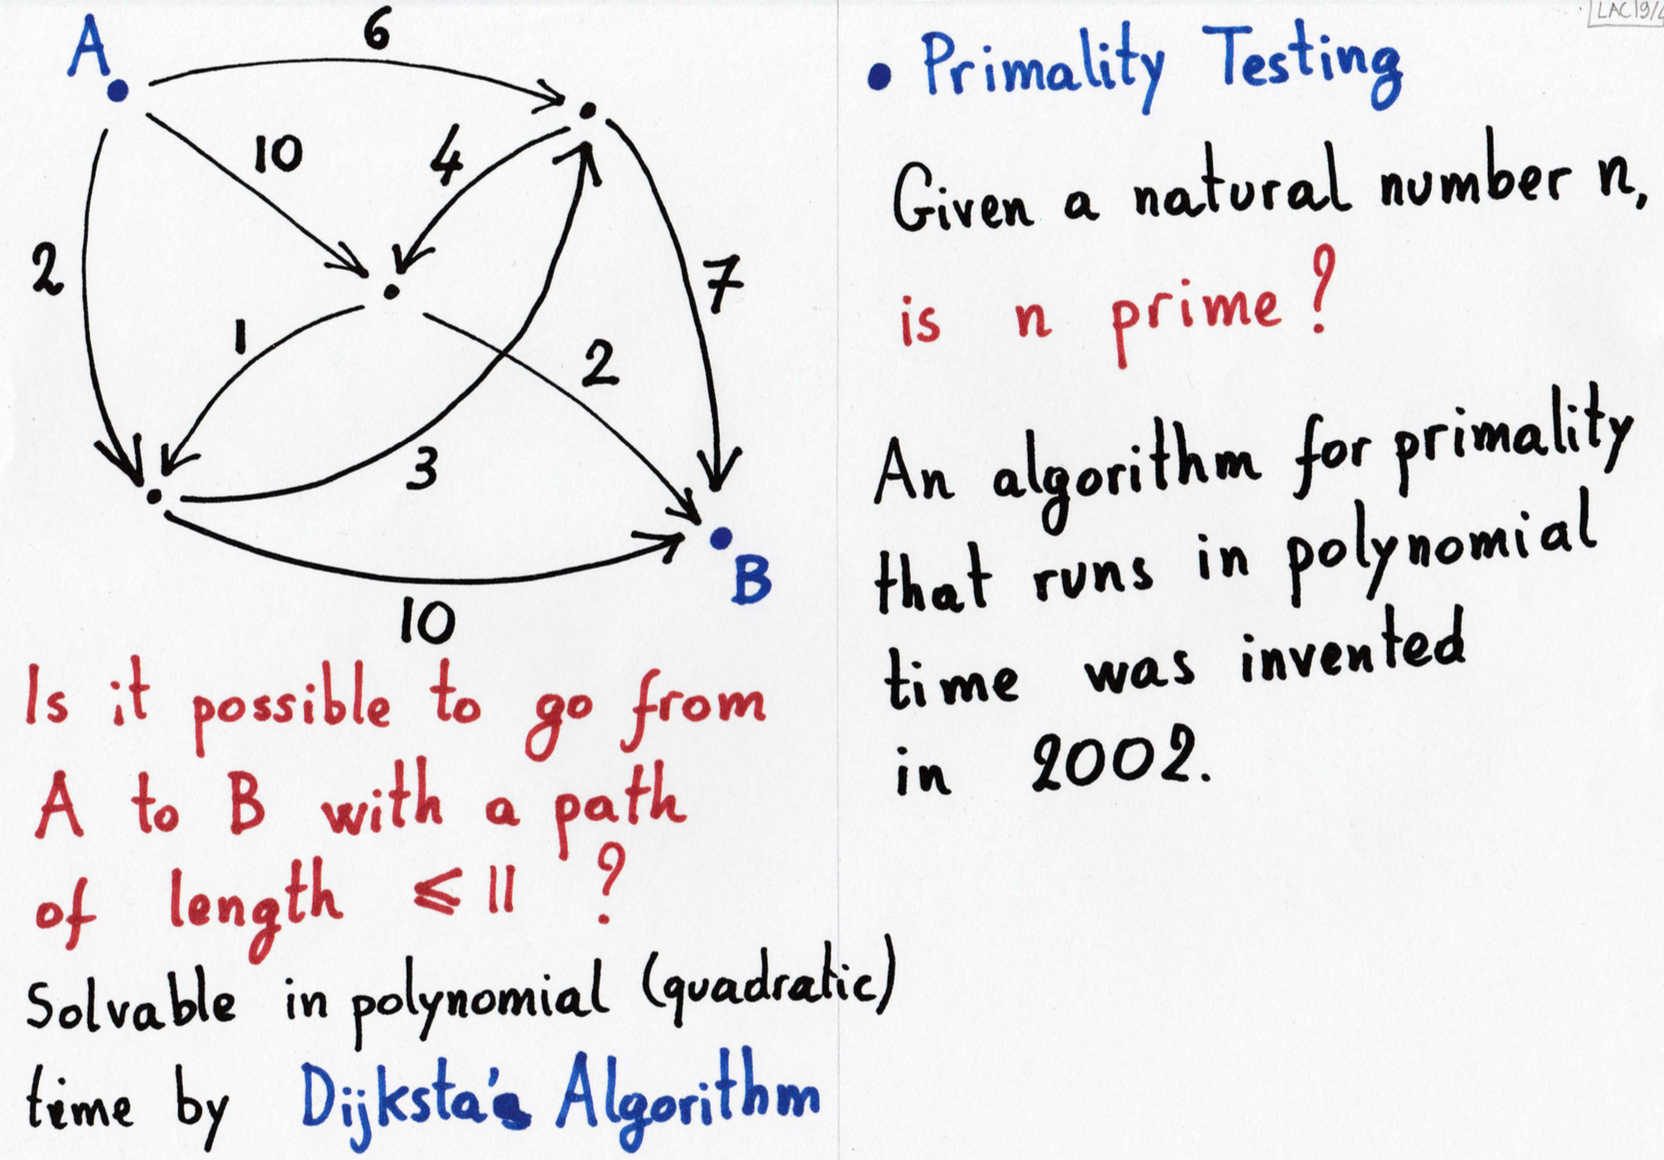 A
6
10
4
2
7
1
2
3
B
10
Is it possible to go from
A to B with a path
of length ⩽ 11 ?
Solvable in polynomial (quadratic)
time by Dijksta's Algorithm
• Primality Testing
Given a natural number n,
is n prime?
An algorithm for primality
that runs in polynomial
time was invented
in 2002.